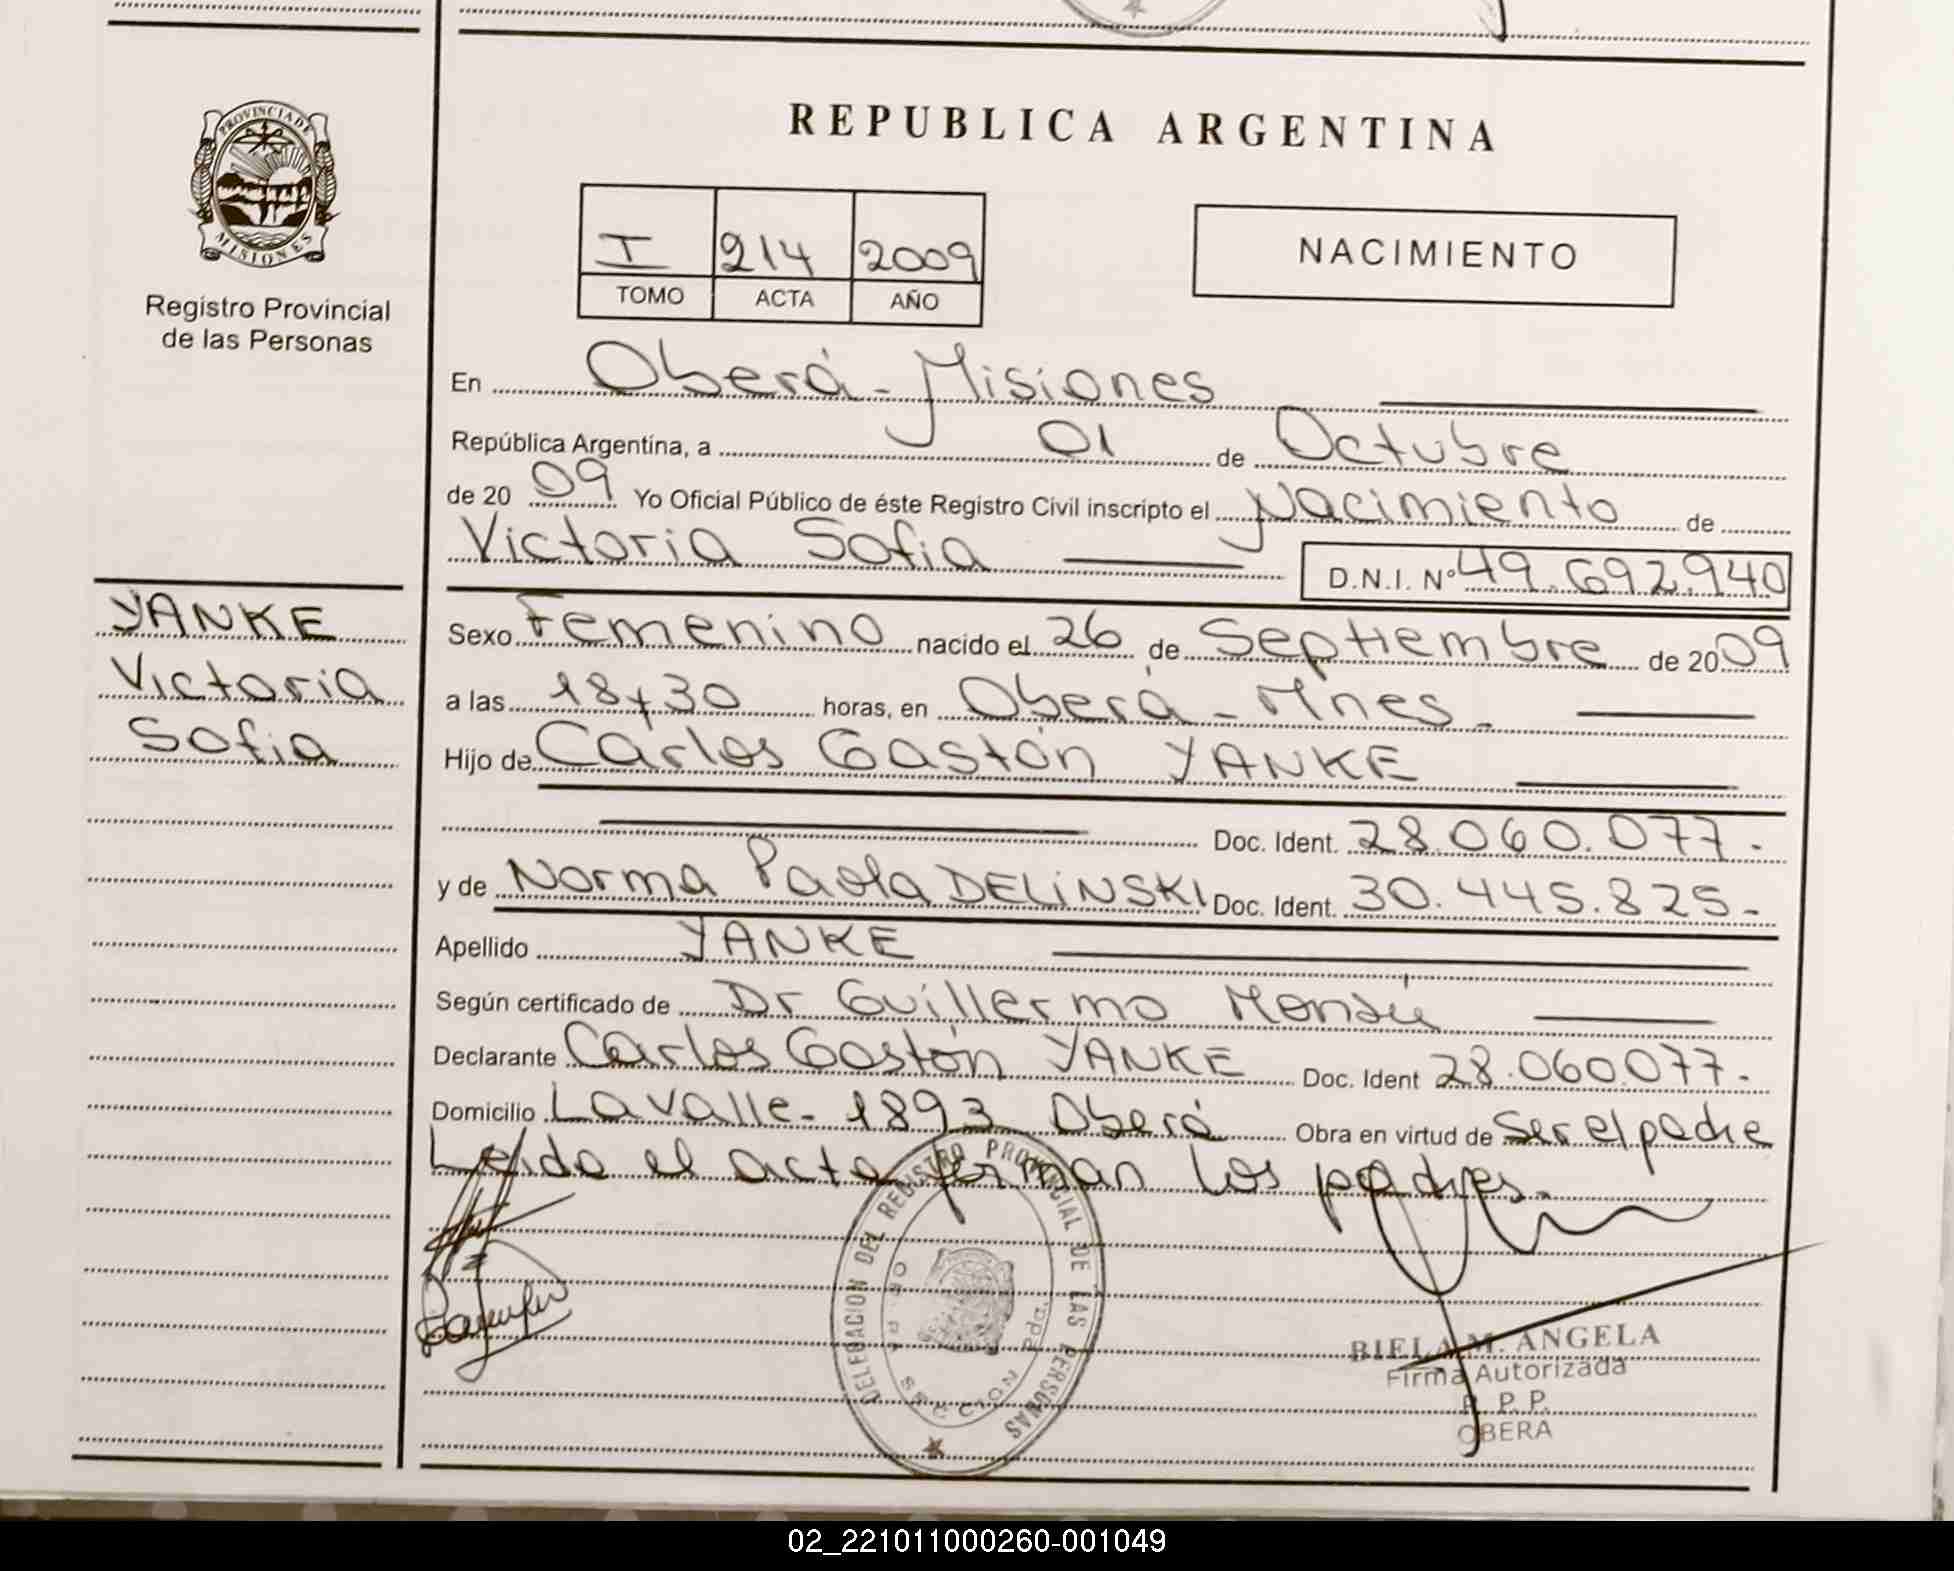 PROVINCIA DE
MISIONES
Registro Provincial
de las Personas
YANKE
Victoria
Sofia
REPUBLICA ARGENTINA
I 214 2009
TOMO ACTA AÑO
NACIMIENTO
En Oberá - Misiones
República Argentina, a 01 de Octubre
de 2009 Yo Oficial Público de éste Registro Civil inscripto el Nacimiento de
Victoria Sofia D.N.I. Nº 49.692.940
Sexo Femenino nacido el 26 de Septiembre de 2009
a las 18 y 30 horas, en Oberá - Mnes.
Hijo de Carlos Gastón YANKE
Doc. Ident. 28.060.077.
y de Norma Paola DELINSKI Doc. Ident. 30.445.825.
Apellido YANKE
Según certificado de Dr Guillermo
Declarante Carlos Gastón YANKE Doc. Ident 28.060.077.
Domicilio Lavalle - 1893 Oberá Obra en virtud de Ser el padre
Leido el acta firman los padres.
DELEGACION DEL REGISTRO PROVINCIAL DE LAS PERSONAS
SECCION
BIELA M. ANGELA
Firma Autorizada
R. P. P.
OBERA
02_221011000260-001049